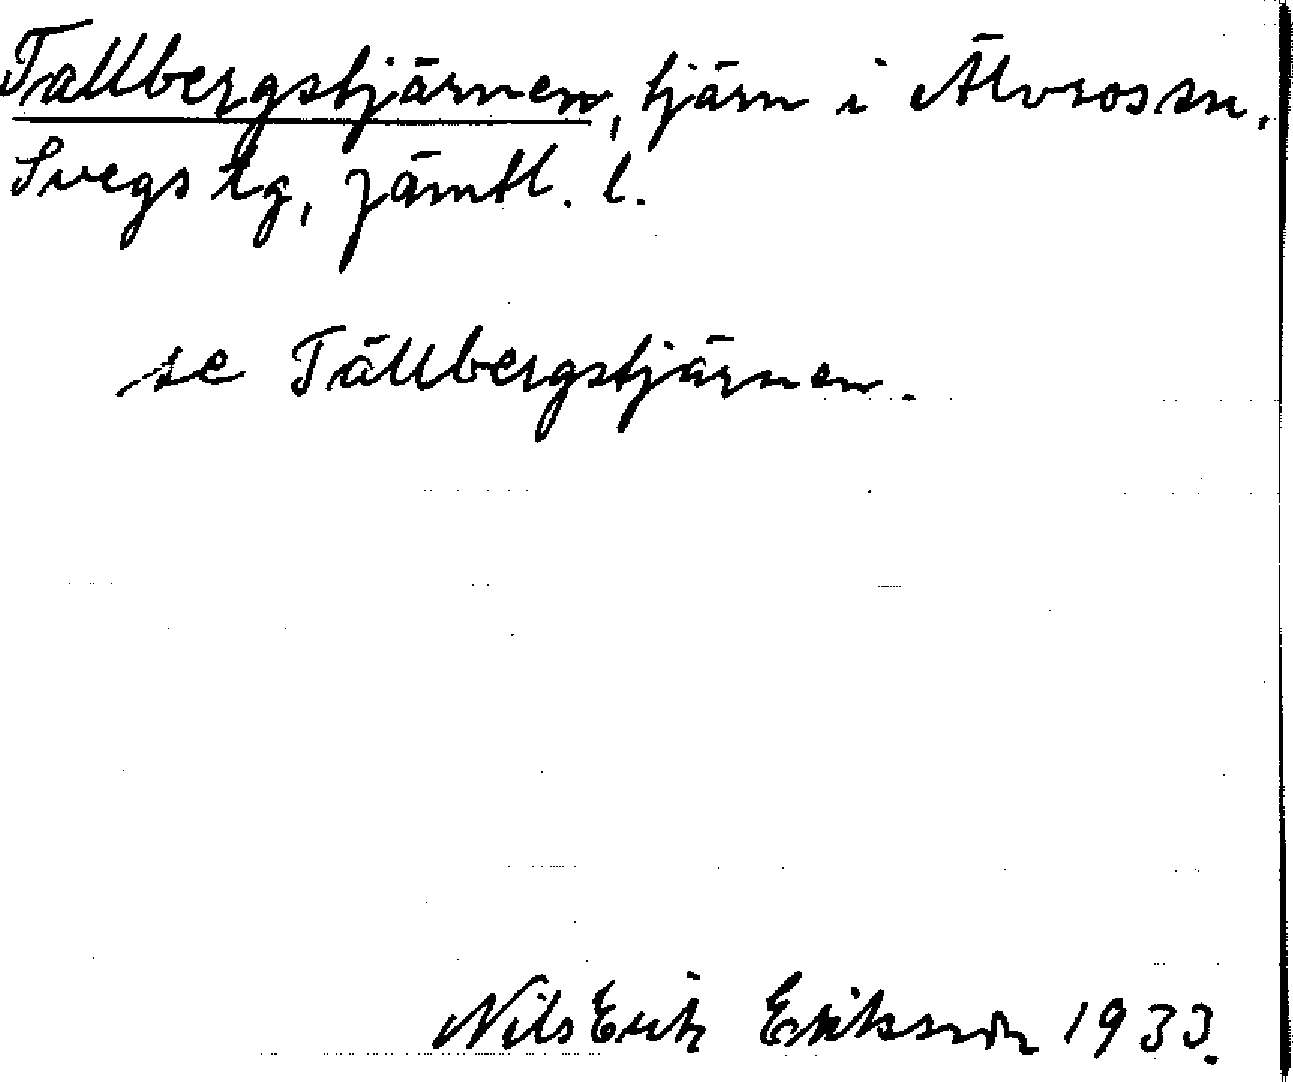 Tallbergstjärnen, tjärn i Älvros sn,
Svegs tg, Jämtl. l.
se Tällbergstjärnen.
Nils Erik Eriksson 1933.